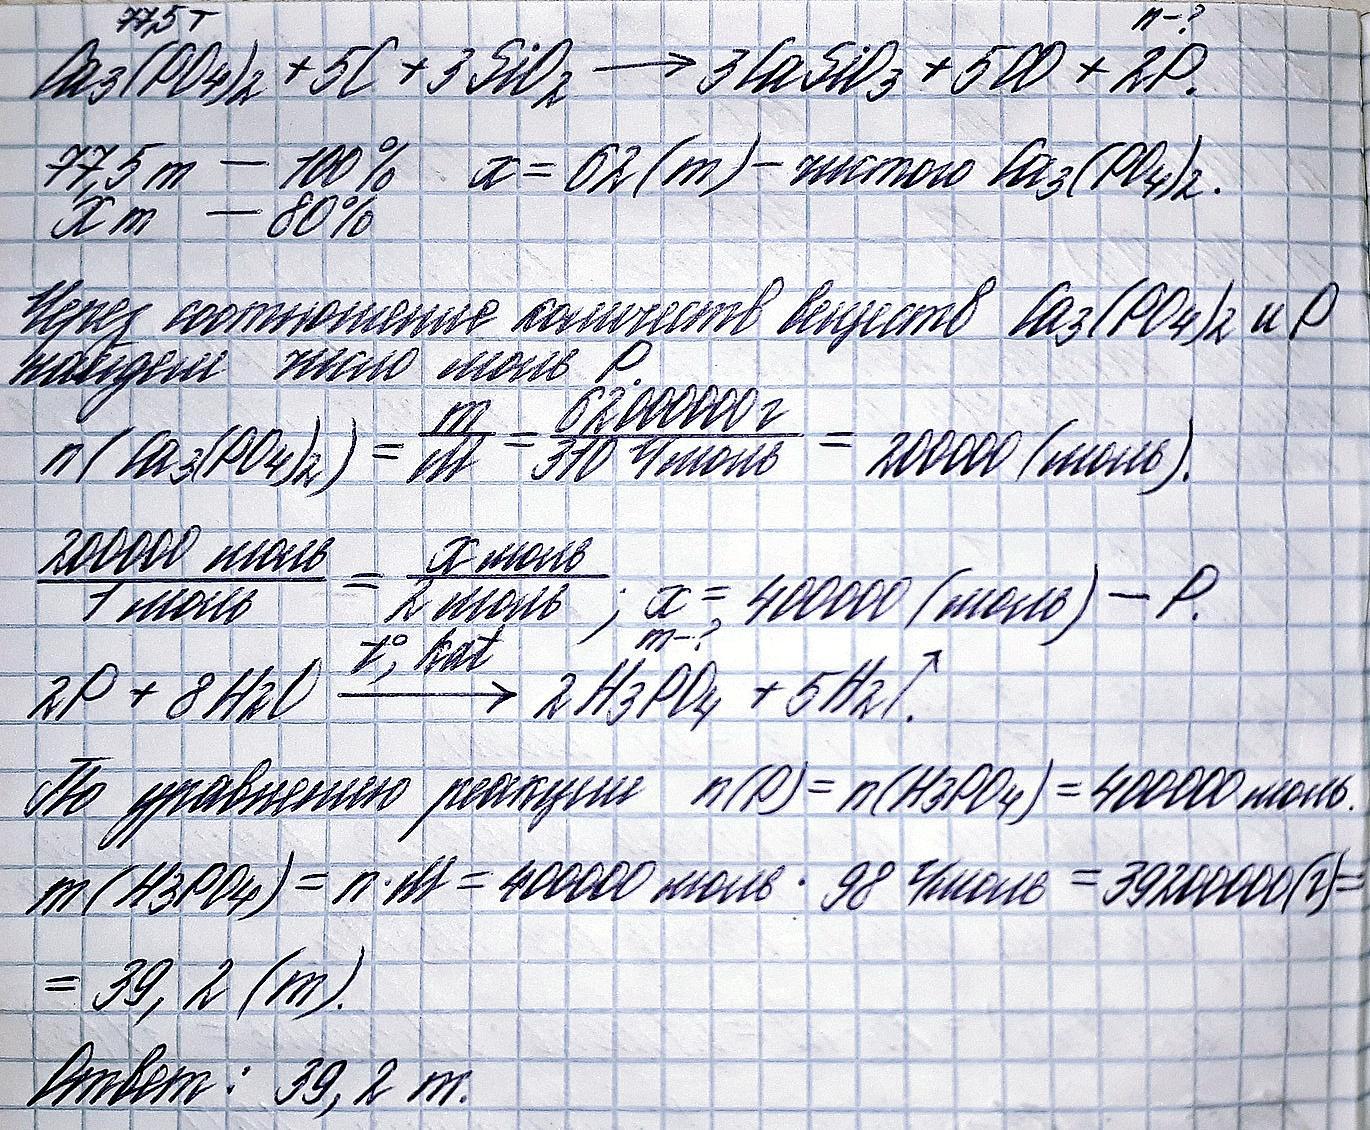 77,5 т n-?
Ca3(PO4)2 + 5C + 3SiO2 → 3CaSiO3 + 5CO + 2P.
77,5 т — 100% x = 62 (т) – чистого Ca3(PO4)2.
x т — 80%
Через соотношение количеств веществ Ca3(PO4)2 и P
найдем число моль P.
n(Ca3(PO4)2) = m/M = 62000000 г/310 г/моль = 200000 (моль).
200000 моль/1 моль = x моль/2 моль ; x = 400000 (моль) – P.
t°, kat m-?
2P + 8H2O → 2H3PO4 + 5H2↑.
По уравнению реакции n(P) = n(H3PO4) = 400000 моль.
m(H3PO4) = n·M = 400000 моль · 98 г/моль = 39200000 (г) =
= 39,2 (т).
Ответ: 39,2 т.